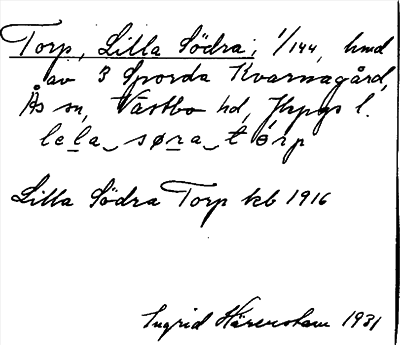 Torp, Lilla Södra; 1/144, hmd
av 3 Sporda Kvarnagård,
Ås sn, Västbo hd, Jkpgs l.
lela søra tørp
Lilla Södra Torp kb 1916
Ingrid 1931